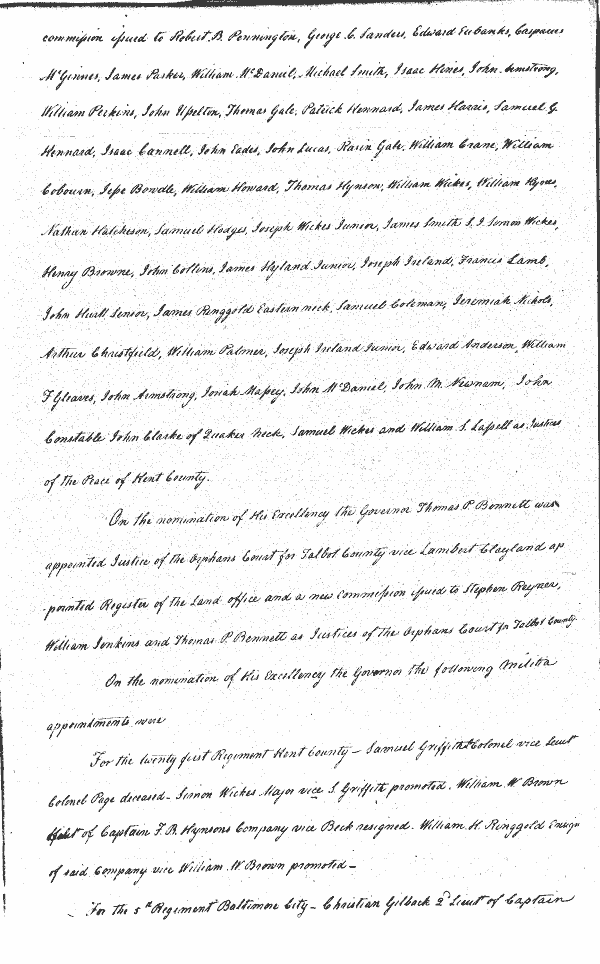 commission issued to Robert B. Pennington, George C. Sanders, Edward Eubanks, Casparus
McGinnes, James Parker, William McDaniel, Michael Smith, Isaac Hines, John Armstrong,
William Perkins, John Upelton, Thomas Gale, Patrick Kennard, James Harris, Samuel G.
Kennard, Isaac Cannell, John Eades, John Lucas, Rasin Gale, William Crane, William
Cobourn, Jesse Bowdle, William Howard, Thomas Hynson, William Wickes, William
Nathan Hatcheson, Samuel Hodges, Joseph Wickes Junior, James Smith S. J. Simon Wickes,
Henry Browne, John Collins, James Hyland Junior, Joseph Ireland, Francis Lamb,
John Hurtt Senior, James Ringgold Eastern neck, Samuel Coleman, Jeremiah Nichols,
Arthur Christfield, William Palmer, Joseph Ireland Junior, Edward Anderson, William
F Gleaves, John Armstrong, Josiah Massey, John McDaniel, John M. Newnam, John
Constable John Clarke of Quaker Neck, Samuel Wickes and William S. Lassell as Justices
of the Peace of Kent County.
On the nomination of His Excellency the Governor Thomas P Bennett was
appointed Justice of the Orphans Court for Talbot County vice Lambert Clayland ap
pointed Register of the Land office and a new Commission issued to Stephen Reyner,
William Jenkins and Thomas P. Bennett as Justices of the Orphans Court for Talbot County.
On the nomination of His Excellency the Governor the following Militia
appointments were
For the twenty first Regiment Kent County – Samuel Griffith Colonel vice Lieut
Colonel Page deceased – Simon Wickes Major vice S. Griffith promoted. William W. Brown
of Captain F. B. Hynsons Company vice Beck resigned. William H. Ringgold Ensign
of said Company vice William W. Brown promoted –
For the 5th Regiment Baltimore City – Christian Gilback 2d Lieut of Captain